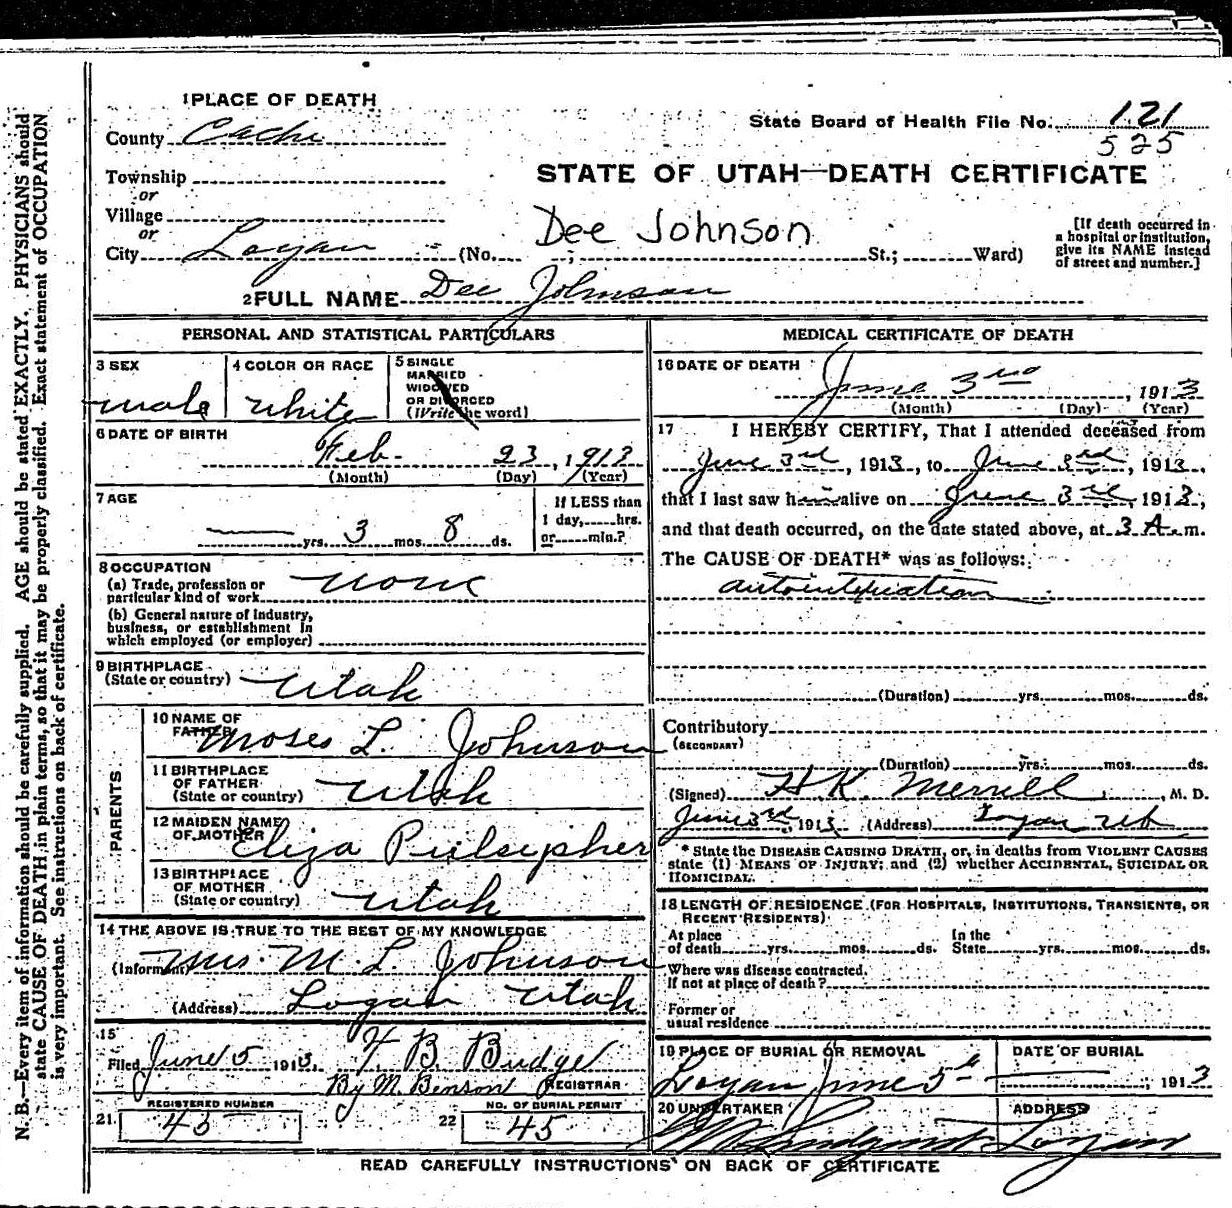 1 PLACE OF DEATH
County Cache
State Board of Health File No. 121
525
Township
or
Village
or
City Logan (No. ; St.; Ward)
STATE OF UTAH—DEATH CERTIFICATE
Dee Johnson
[If death occurred in
a hospital or institution,
give its NAME instead
of street and number.]
2 FULL NAME Dee Johnson
PERSONAL AND STATISTICAL PARTICULARS
3 SEX
male
4 COLOR OR RACE
white
5 SINGLE
MARRIED
WIDOWED
OR DIVORCED
(Write the word)
6 DATE OF BIRTH
Feb. 23, 1913
(Month) (Day) (Year)
7 AGE
— yrs. 3 mos. 8 ds.
If LESS than
1 day, hrs.
or min.?
8 OCCUPATION
(a) Trade, profession or
particular kind of work none
(b) General nature of industry,
business, or establishment in
which employed (or employer)
9 BIRTHPLACE
(State or country) Utah
PARENTS
10 NAME OF
FATHER Moses L. Johnson
11 BIRTHPLACE
OF FATHER
(State or country) Utah
12 MAIDEN NAME
OF MOTHER Eliza Pulsipher
13 BIRTHPLACE
OF MOTHER
(State or country) Utah
14 THE ABOVE IS TRUE TO THE BEST OF MY KNOWLEDGE
(Informant) Mrs. M. L. Johnson
(Address) Logan Utah
15
Filed June 5 1913, F. B. Budge
By M. Benson REGISTRAR
REGISTERED NUMBER
21. 43
NO. OF BURIAL PERMIT
22 45
MEDICAL CERTIFICATE OF DEATH
16 DATE OF DEATH
June 3rd, 1913
(Month) (Day) (Year)
17 I HEREBY CERTIFY, That I attended deceased from
June 3rd, 1913, to June 3rd, 1913,
that I last saw him alive on June 3rd, 1913,
and that death occurred, on the date stated above, at 3 A. m.
The CAUSE OF DEATH* was as follows:
autointoxication
(Duration) yrs. mos. ds.
Contributory
(SECONDARY)
(Duration) yrs. mos. ds.
(Signed) H. K. Merrill, M. D.
June 3rd, 1913 (Address) Logan Ut
* State the DISEASE CAUSING DEATH, or, in deaths from VIOLENT CAUSES
state (1) MEANS OF INJURY; and (2) whether ACCIDENTAL, SUICIDAL OR
HOMICIDAL.
18 LENGTH OF RESIDENCE (FOR HOSPITALS, INSTITUTIONS, TRANSIENTS, OR
RECENT RESIDENTS)
At place
of death yrs. mos. ds.
In the
State yrs. mos. ds.
Where was disease contracted.
If not at place of death?
Former or
usual residence
19 PLACE OF BURIAL OR REMOVAL
Logan June 5th
DATE OF BURIAL
, 1913
20 UNDERTAKER
Lindquist
ADDRESS
Logan
READ CAREFULLY INSTRUCTIONS ON BACK OF CERTIFICATE
N. B.—Every item of information should be carefully supplied. AGE should be stated EXACTLY. PHYSICIANS should
state CAUSE OF DEATH in plain terms, so that it may be properly classified. Exact statement of OCCUPATION
is very important. See instructions on back of certificate.